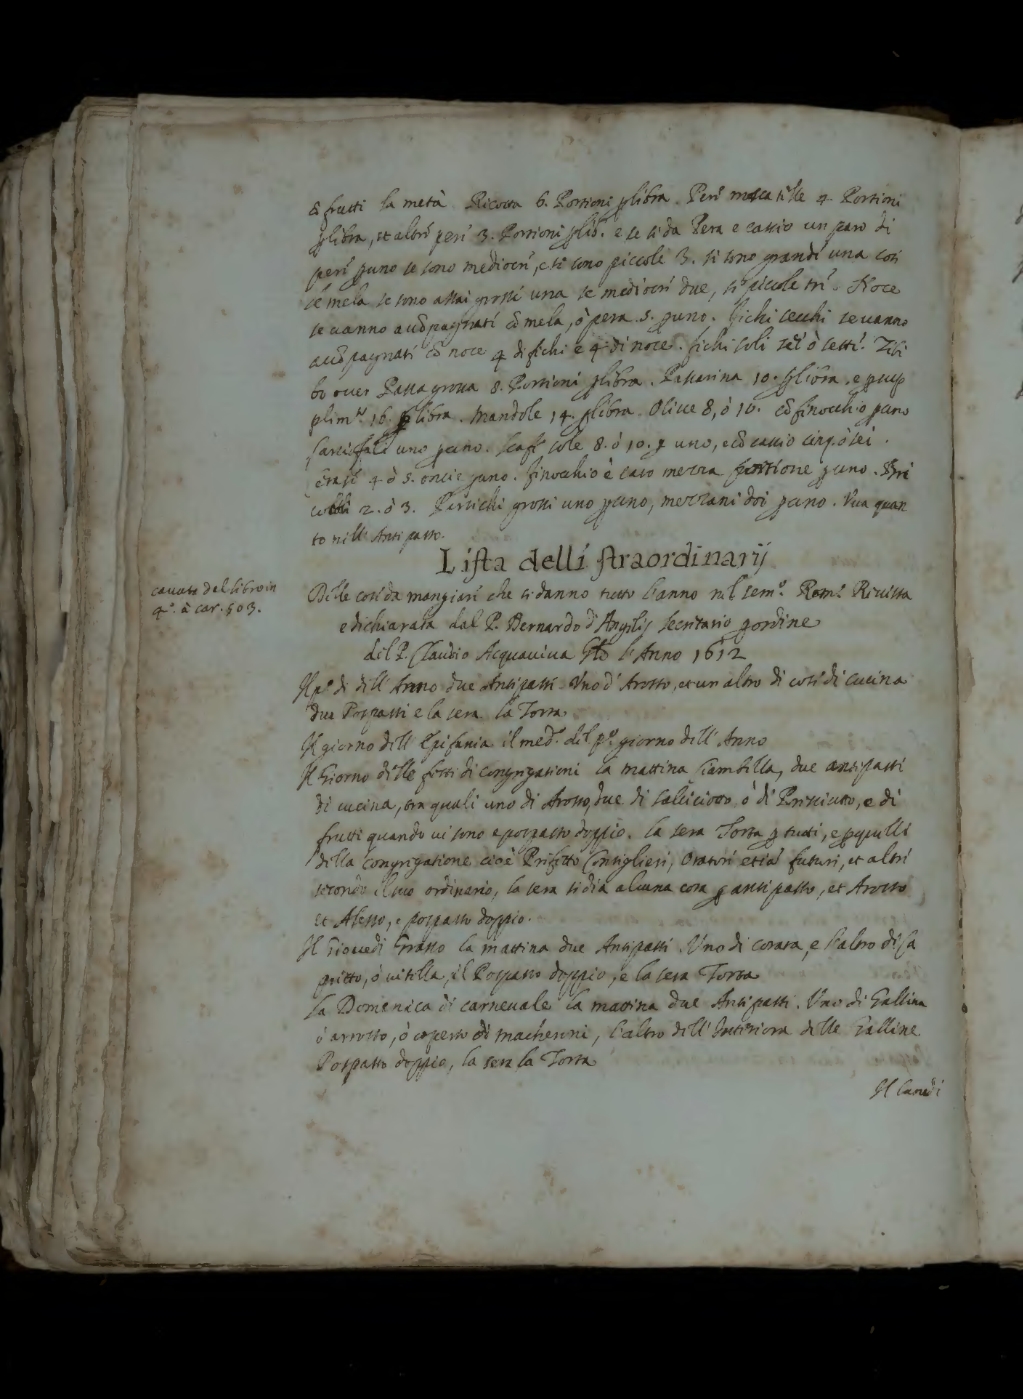 di frutti la metà. Ricotta 6. Portioni p libra. Peri moscatelle 4. Portioni
p libra, et altri peri 3. Portioni p lib. e se si da Pera e cascio un paro di
peri p uno se sono mediocri, e se sono piccoli 3. si sono grandi una cosi
le mela se sono assai grossi una se mediocri due, si piccole tri. Noce
se uanno accōpagnati cō mela, ò pera .5. p uno. fichi secchi se uanno
accōpagnati cō noce 4 di fichi e 4 di noce. fichi soli sei ò setti. Zibi
bo ouer Passa grossa 8. Portioni p libra. Passarina 10. p libra. e p
plim.to 16. p libra. Mandole 14. p libra. Oliue 8, ò 10. cō finocchio p uno
uno p uno. 8. ò 10. p uno, e cō cascio cinq. ò sei.
4 ò 5. oncie p uno. finocchio è caso mezza portione p uno. Bri
cocoli 2. ò 3. Persichi grossi uno p uno, mezzani doi p uno. Vua quan
to nell' Anti pasto.
Lista delli straordinarij
cauata dal libro in
4.º à car. 503.
Delle cosi da mangiari che si danno tutto l'anno nel sem.º Rom.º Riuista
e dichiarata dal P. Bernardo d'Angelis secretario p ordine
del P. Claudio Acquauiua Gñle l'Anno 1612
Il p.º di dell'Anno due Antipasti Vno d'Arosto, et un altro di cosi di cucina
due Pospasti e la sera la Torta
Il giorno dell'Epifania il med.º del p.º giorno dell'Anno
Il Giorno delle festi di congregationi la mattina Ciambella, due antipasti
di cucina, tra quali uno di Arosto, due di salciciotto ò di Presciutto, e di
frutti quando ui sono e pospasto doppio. la sera Torta p tutti, e p quelli
della congregatione cioè Prefetto Consiglieri, Oratori etiā futuri, et altri
secondo il suo ordinario, la sera si dia alcuna cosa p antipasto, et Arosto
et Alesso, e pospasto doppio.
Il Giouedi Grasso la mattina due Antipasti. Vno di corata, e l'altro di fa
ghetto, ò uitella, il Pospasto doppio, e la sera Torta
la Domenica di carneuale la mattina due Antipasti. Vno di Gallina
ò arrosto, ò coperto di macheroni, l'altro dell'Interiora delle Galline
Pospasto doppio, la sera la Torta
Il Lunedi